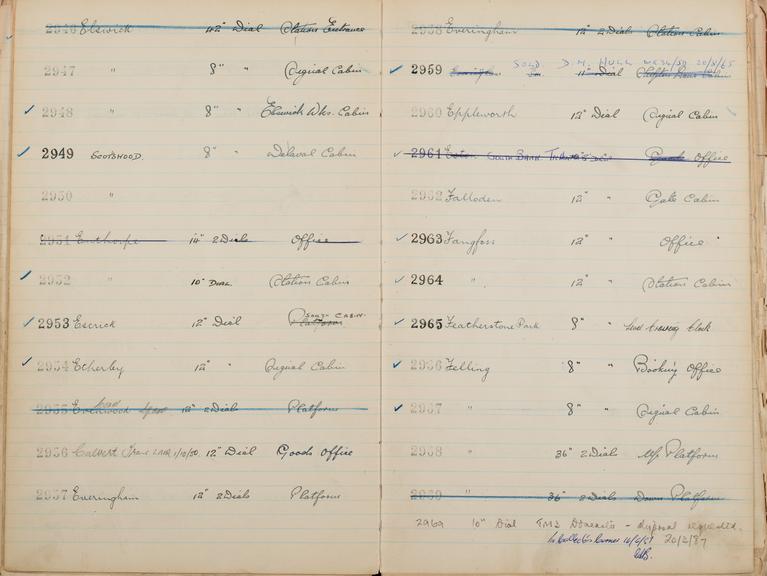 2946 Elswick 12" Dial Station Entrance
2947 " 8" " Signal Cabin
2948 " 8" " Elswick Wks. Cabin
2949 SCOTSWOOD. 8" " Delaval Cabin
2950 "
2951 Enthorpe 14" 2 Dials Office
2952 " 10" DIAL Station Cabin
SOUTH CABIN.
2953 Escrick 12" Dial Platform
2954 Etherley 12" " Signal Cabin
2955 Evenwood 12" 2 Dials Platform
2956 Calvert 1/10/50. 12" Dial Goods Office
2957 Everingham 12" 2 Dials Platform
2958 Everingham 12" 2 Dials Station Cabin
SOLD D. M. HULL
2959 11" Dial Cabin
2960 Eppleworth 12" Dial Signal Cabin
2961 SOUTH BANK Goods Office
2962 Falloden 12" " Gate Cabin
2963 Fangfoss 12" " Office
2964 " 12" " Station Cabin
2965 Featherstone Park 8" "
2966 Felling 8" " Booking Office
2967 " 8" " Signal Cabin
2968 " 36" 2 Dials Up Platform
2969 " 36" 2 Dials Down Platform
2969 10" Dial - disposal requested.
20/2/87